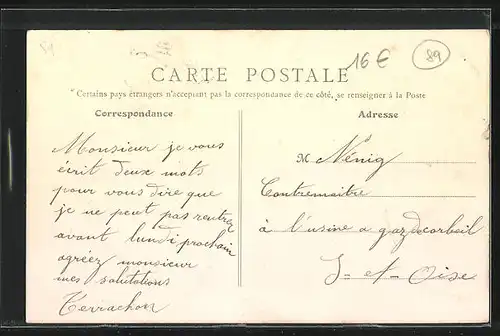 81
16€
89
CARTE POSTALE
Certains pays étrangers n'acceptent pas la correspondance de ce côté, se renseigner à la Poste
Correspondance
Monsieur je vous
écrit deux mots
pour vous dire que
je ne peut pas rentrer
avant lundi prochain
agréez monsieur
mes salutations
Terrachon
Adresse
M. Nénig
Contremaitre
à l'usine a gaz de corbeil
S-et-Oise